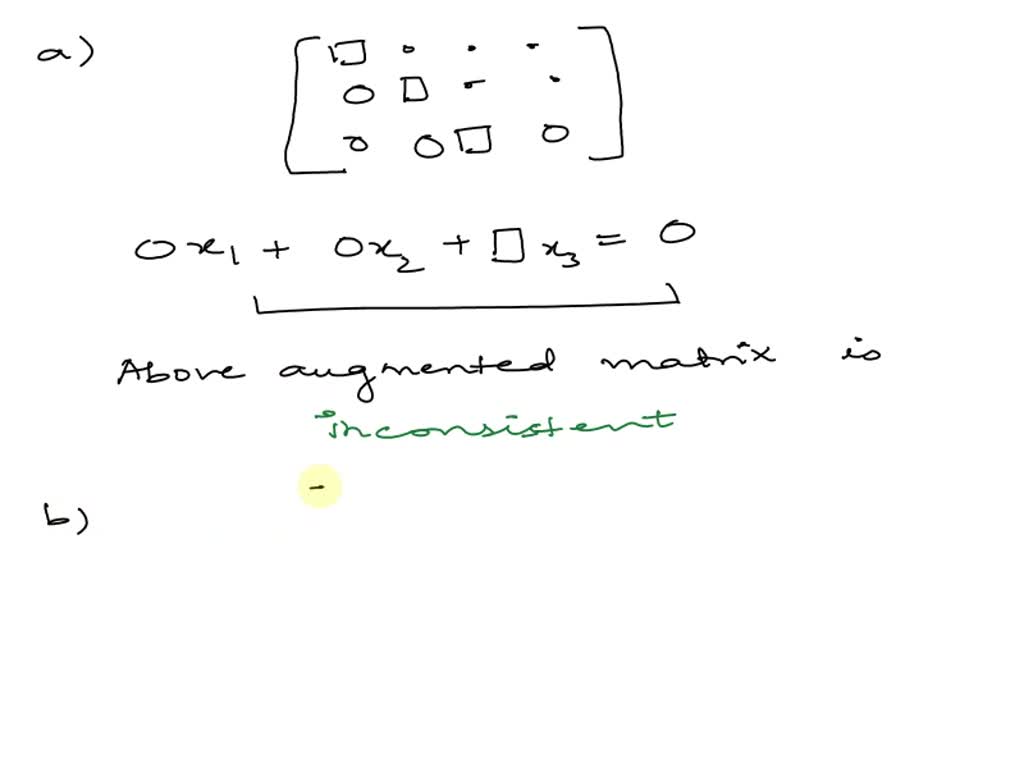 a)
[ □ . . - ]
[ 0 □ - . ]
[ 0 0 □ 0 ]
0x₁ + 0x₂ + □ x₃ = 0
Above augmented matrix is
inconsistent
-
b)